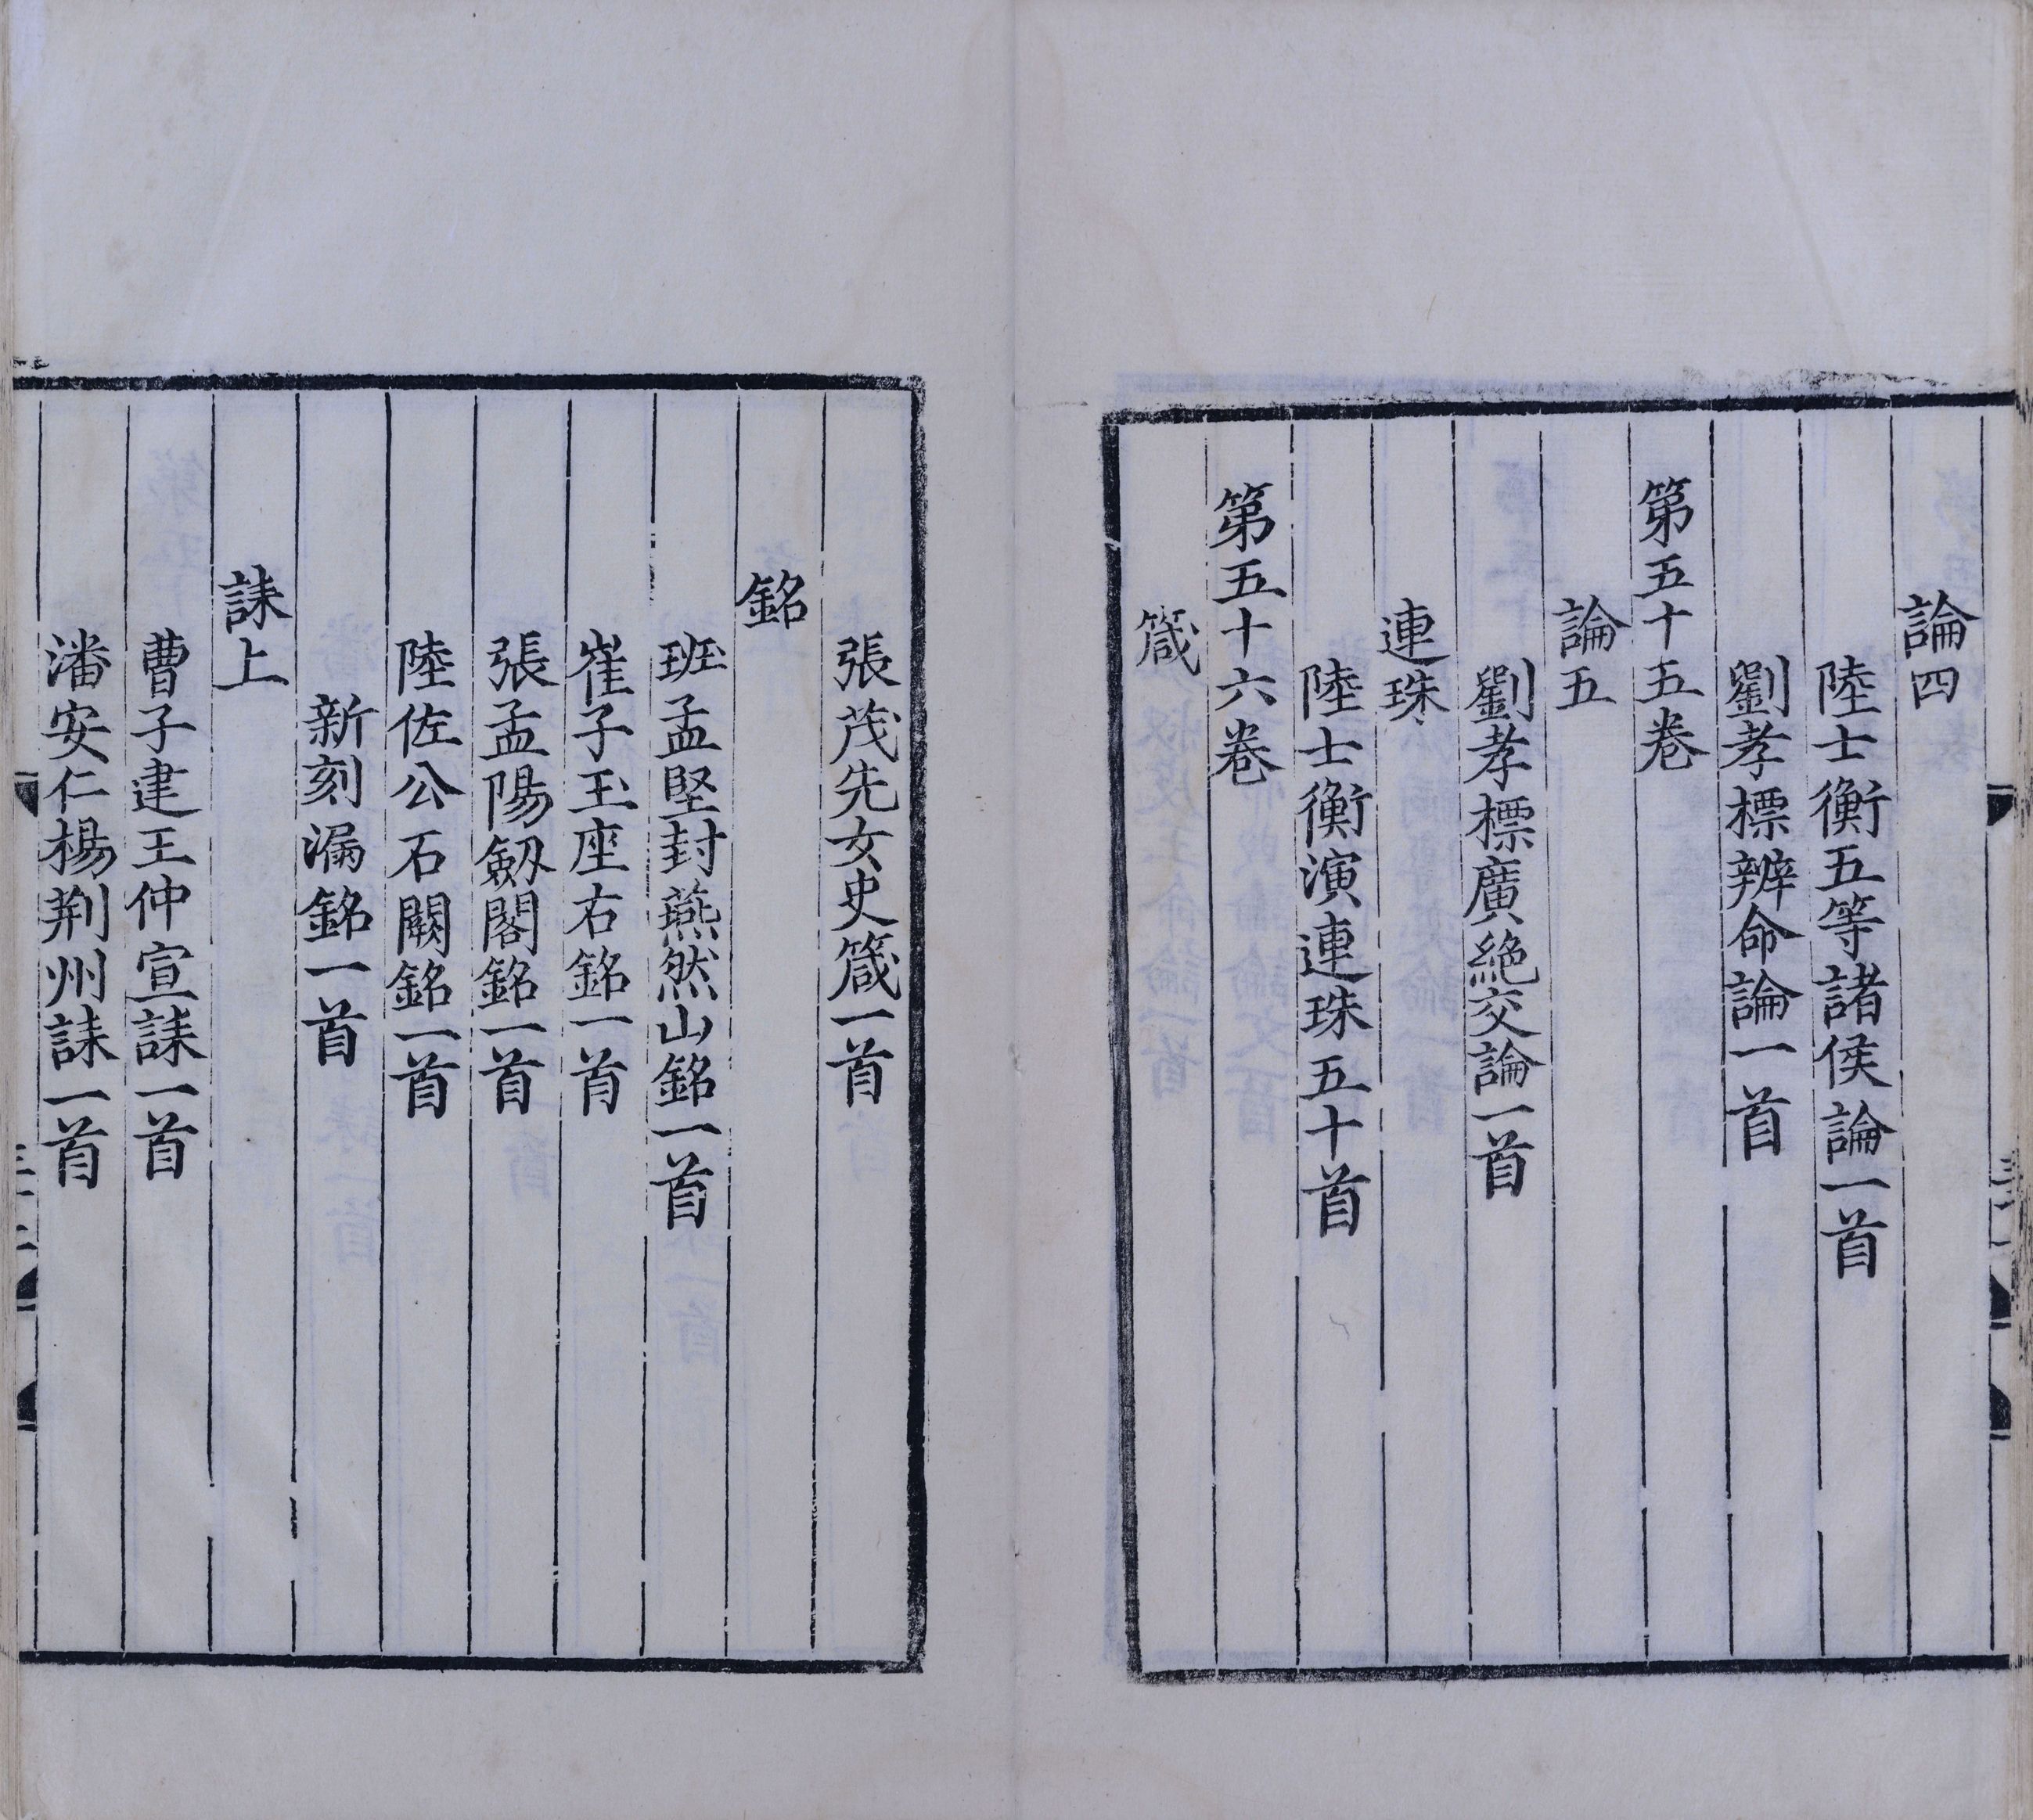 論四
陸士衡五等諸侯論一首
劉孝標辨命論一首
第五十五卷
論五
劉孝標廣絶交論一首
連珠
陸士衡演連珠五十首
第五十六卷
箴
張茂先女史箴一首
銘
班孟堅封燕然山銘一首
崔子玉座右銘一首
張孟陽劔閣銘一首
陸佐公石闕銘一首
新刻漏銘一首
誄上
曹子建王仲宣誄一首
潘安仁楊荆州誄一首